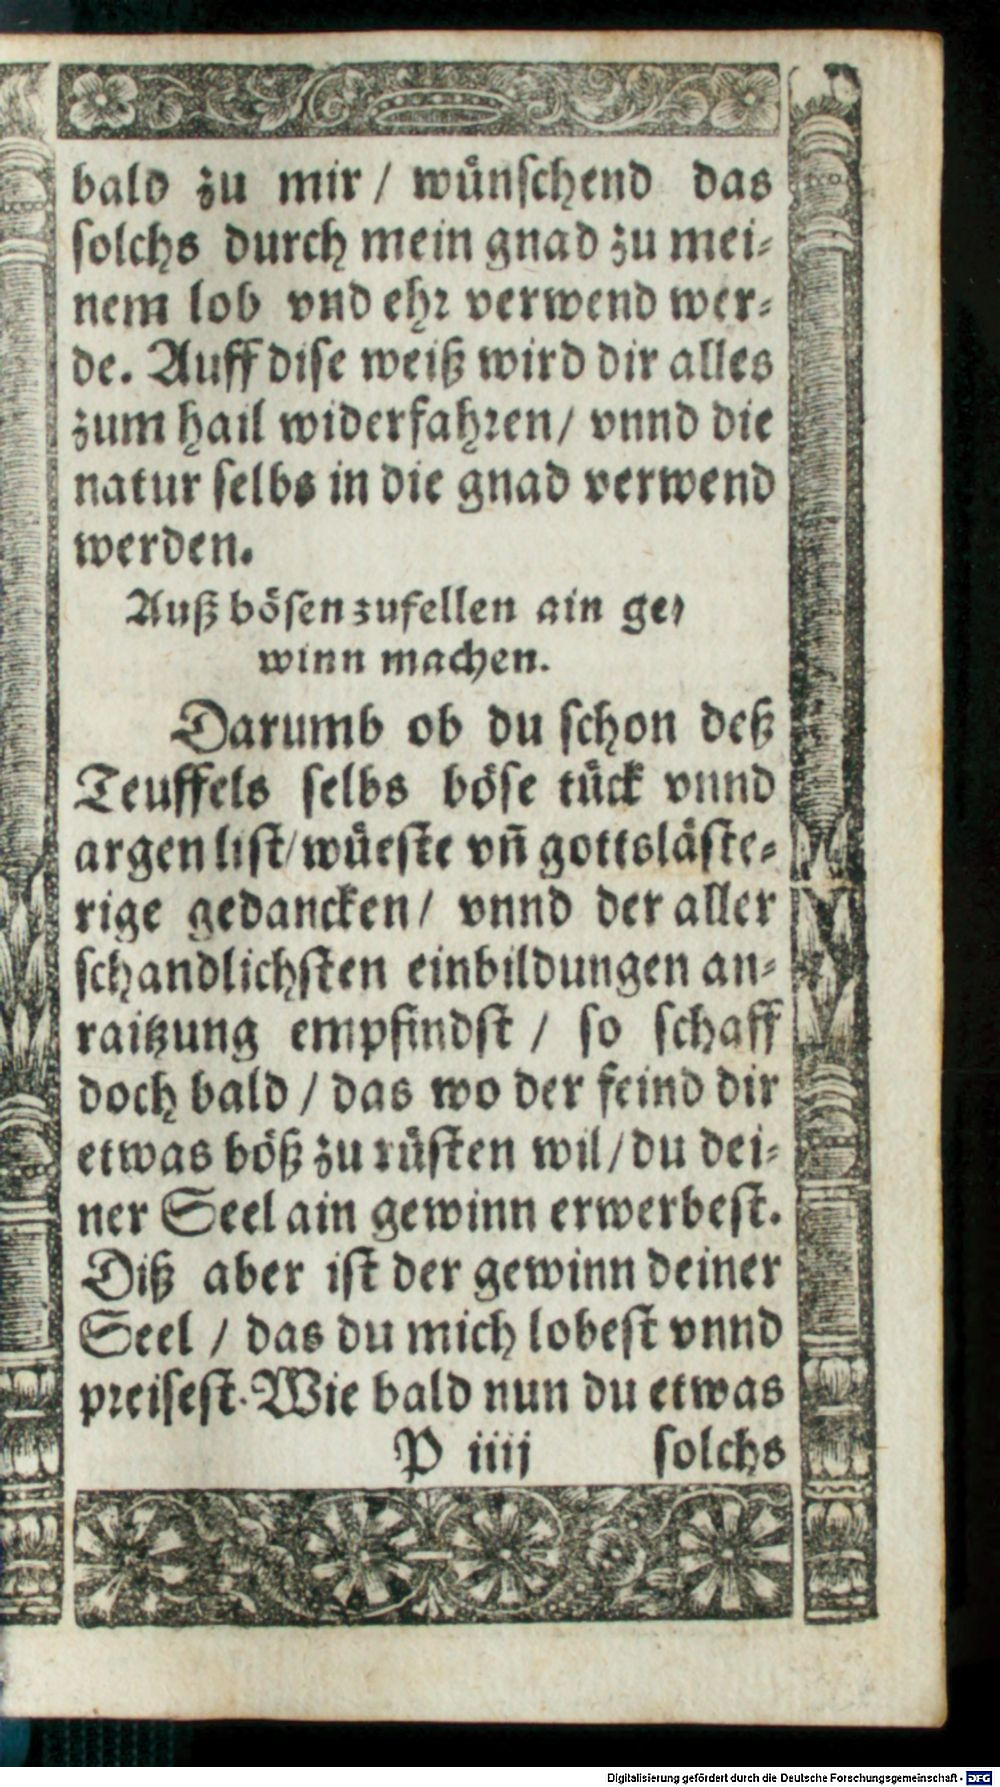 bald zu mir / wünschend das
solchs durch mein gnad zu mei⸗
nem lob vnd ehr verwend wer⸗
de. Auff dise weiß wird dir alles
zum hail widerfahren / vnnd die
natur selbs in die gnad verwend
werden.
Auß bösen zufellen ain ge⸗
winn machen.
Darumb ob du schon deß
Teuffels selbs böse tück vnnd
argen list / wüeste vñ gottsläste⸗
rige gedancken / vnnd der aller
schandlichsten einbildungen an⸗
raitzung empfindst / so schaff
doch bald / das wo der feind dir
etwas böß zu rüsten wil / du dei⸗
ner Seel ain gewinn erwerbest.
Diß aber ist der gewinn deiner
Seel / das du mich lobest vnnd
preisest. Wie bald nun du etwas
P iiij solchs
Digitalisierung gefördert durch die Deutsche Forschungsgemeinschaft - DFG